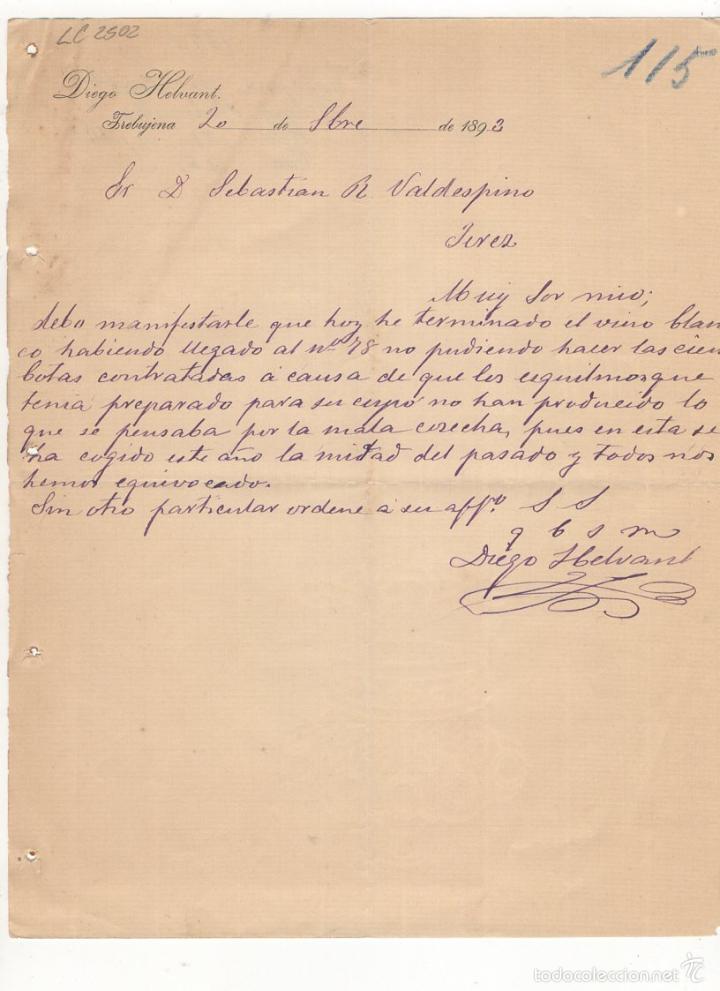 LC 2502
115
Diego Helvant.
Trebujena 20 de Sbre de 1893
Sr D Sebastian R Valdespino
Jerez
Muy Sor mio;
debo manifestarle que hoy he terminado el vino blan
co habiendo llegado al nº 78 no pudiendo hacer las cien
botas contratadas á causa de que los esquilmos que
tenia preparado para su cupo no han producido lo
que se pensaba por la mala cosecha, pues en esta se
ha cogido este año la mitad del pasado y todos nos
hemos equivocado.
Sin otro particular ordene á su affº. S S
q b s m
Diego Helvant
todocoleccion.net